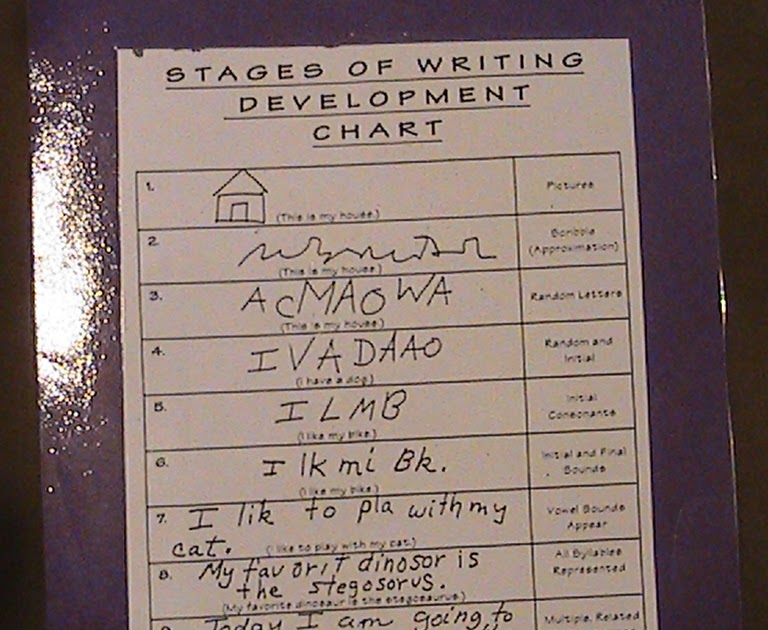 STAGES OF WRITING
DEVELOPMENT
CHART
1.
(This is my house.)
Pictures
2.
(This is my house.)
Scribble
(Approximation)
3.
ACMAOWA
(This is my house)
Random Letters
4.
IVADAAO
(I have a dog)
Random and
Initial
5.
I L M B
(I like my bike.)
Initial
Consonants
6.
I lk mi Bk.
(I like my bike.)
Initial and Final
Sounds
7. I lik to pla with my
cat. (I like to play with my cat.)
Vowel Sounds
Appear
8. My favorit dinosor is
the stegosorus.
(My favorite dinosaur is the stegosaurus.)
All Syllables
Represented
Today I am going to
Multiple, Related